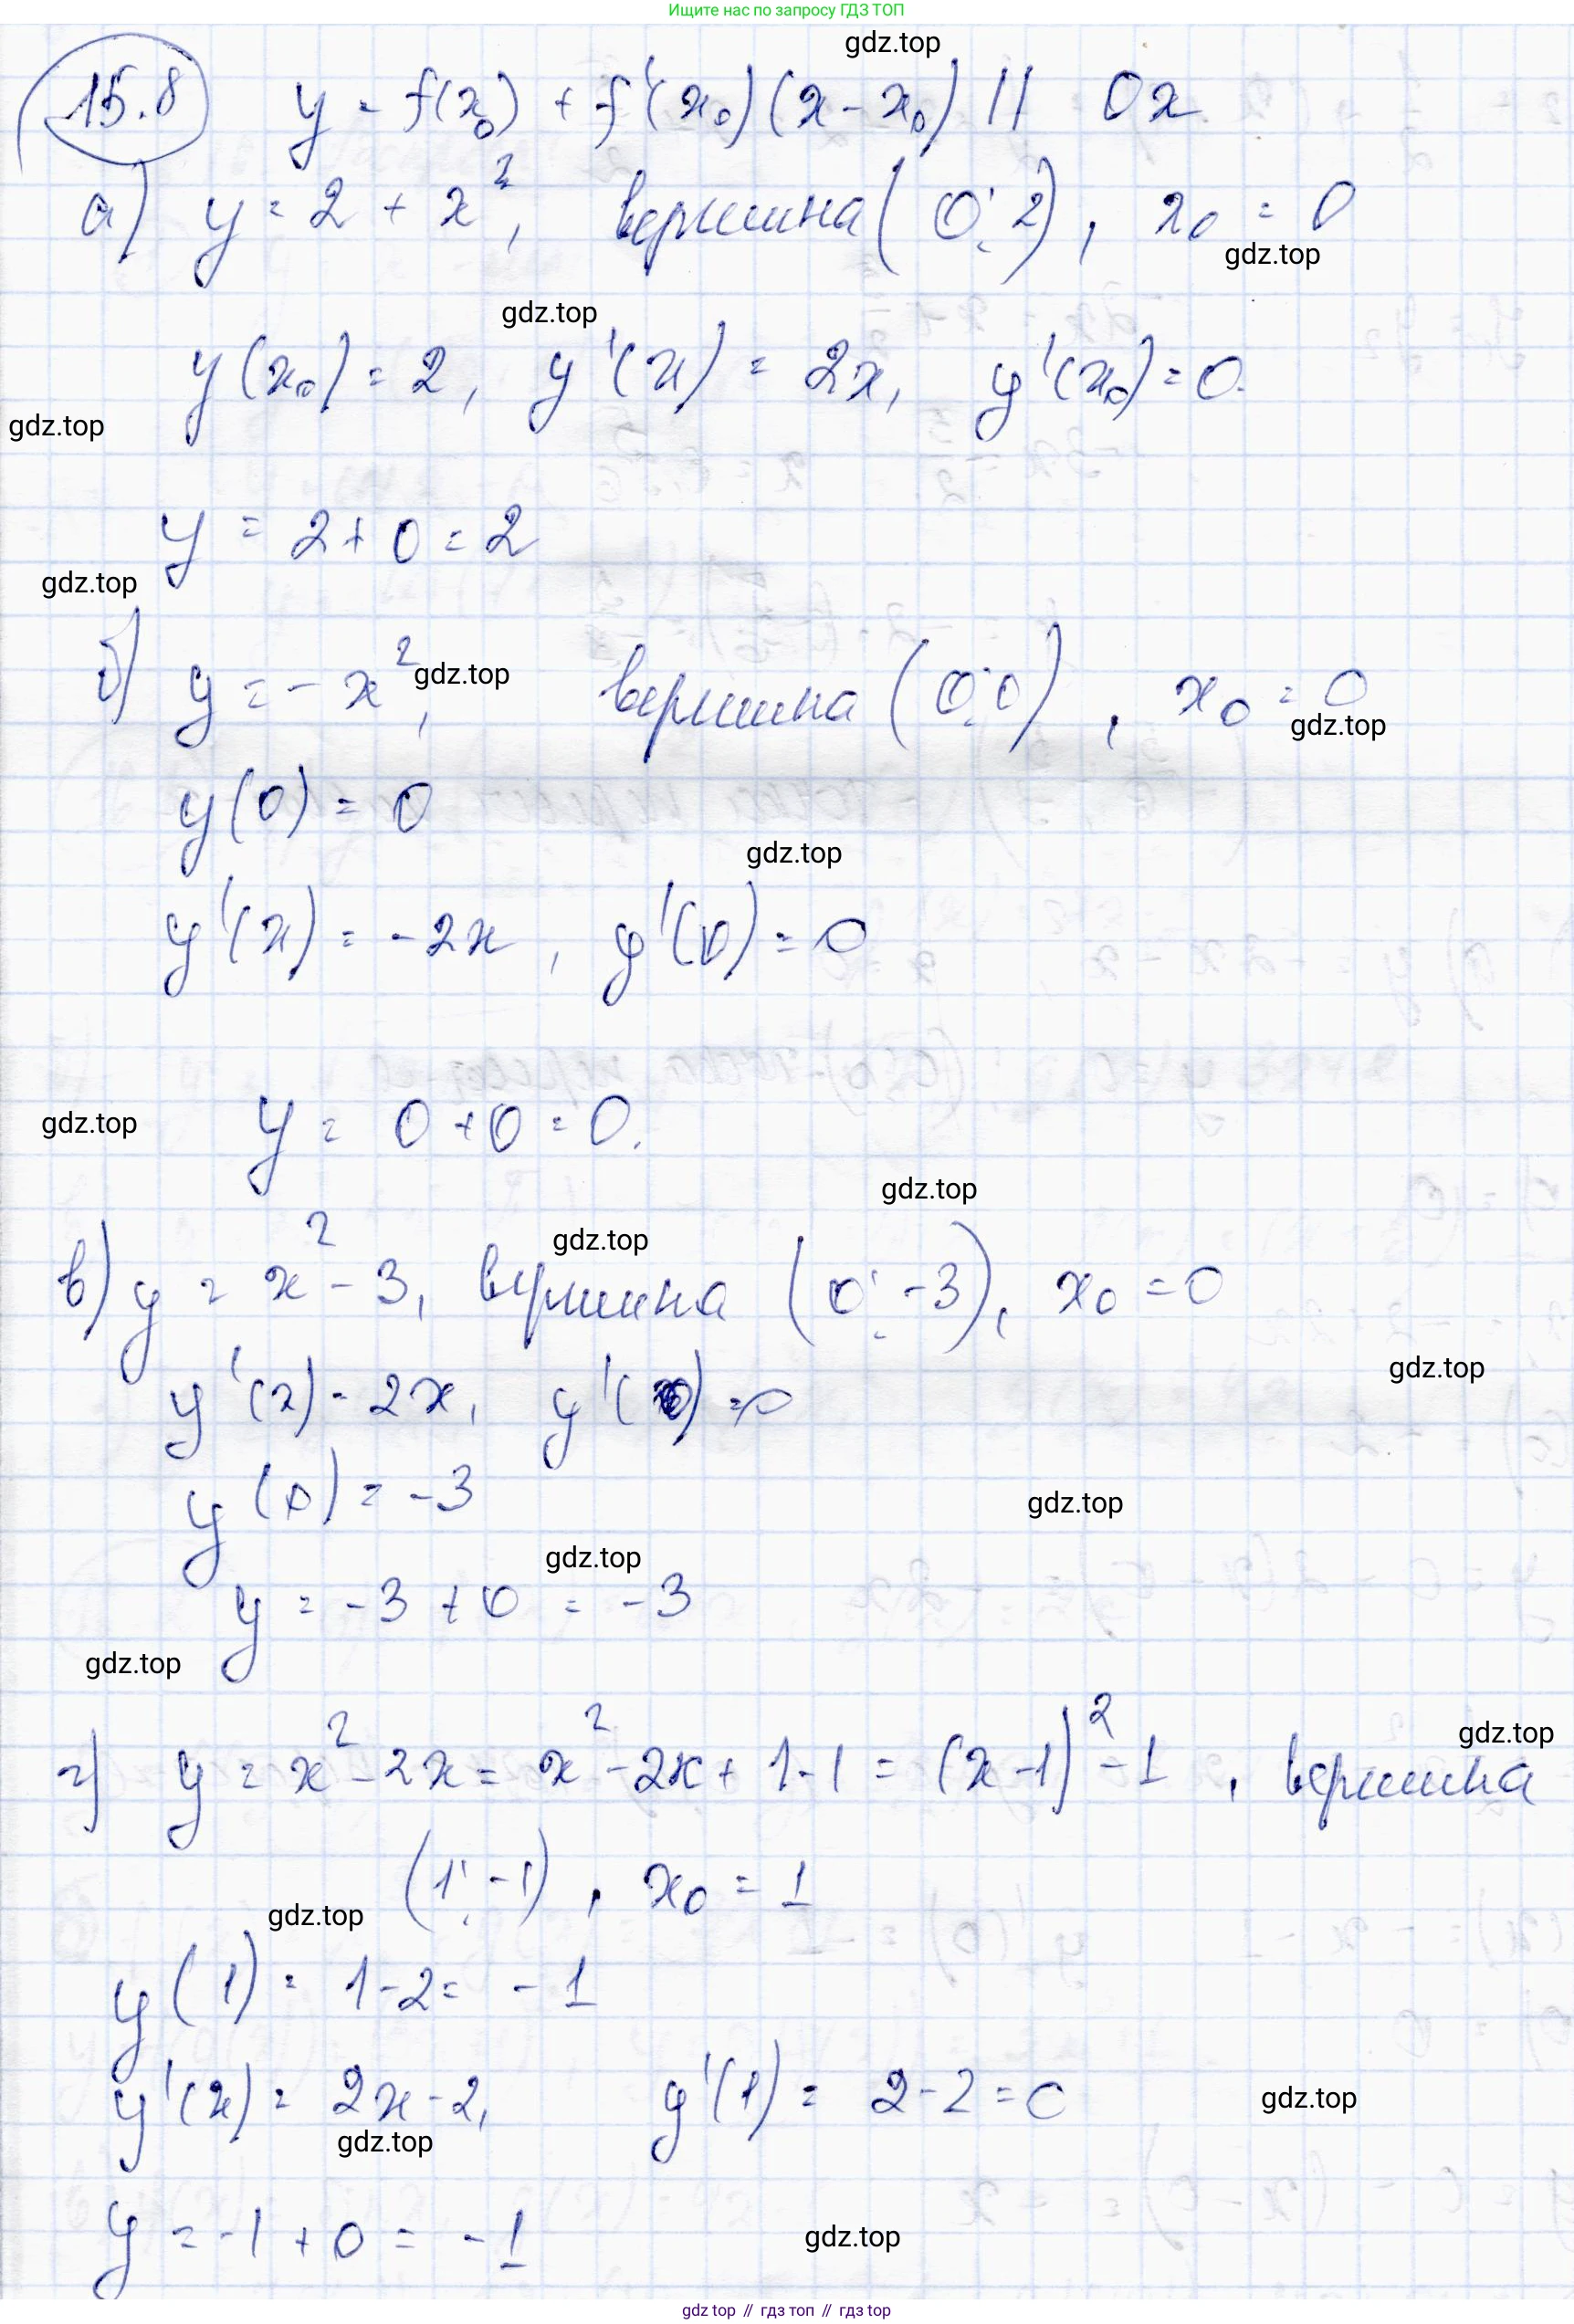 Ищите нас по запросу ГДЗ ТОП
gdz.top
15.8 y = f(x₀) + f'(x₀)(x - x₀) || Ox
а) y = 2 + x², вершина (0; 2), x₀ = 0
gdz.top
gdz.top
y(x₀) = 2, y'(x) = 2x, y'(x₀) = 0.
gdz.top
y = 2 + 0 = 2
gdz.top
б) y = - x², вершина (0; 0), x₀ = 0
gdz.top
gdz.top
y(0) = 0
gdz.top
y'(x) = -2x, y'(0) = 0
y = 0 + 0 = 0.
gdz.top
gdz.top
gdz.top
в) y = x² - 3, вершина (0; -3), x₀ = 0
gdz.top
y'(x) = 2x, y'(0) = 0
y(0) = -3
gdz.top
gdz.top
y = -3 + 0 = -3
gdz.top
gdz.top
г) y = x² - 2x = x² - 2x + 1 - 1 = (x - 1)² - 1, вершина
(1; -1), x₀ = 1
gdz.top
y(1) = 1 - 2 = -1
y'(x) = 2x - 2, y'(1) = 2 - 2 = 0
gdz.top
gdz.top
y = -1 + 0 = -1
gdz.top
gdz top // гдз топ // гдз top